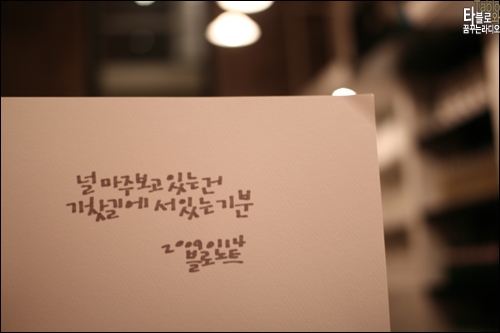 타블로와
꿈꾸는라디오
널 마주보고 있는건
기찻길에 서있는 기분
20090114
블로노트